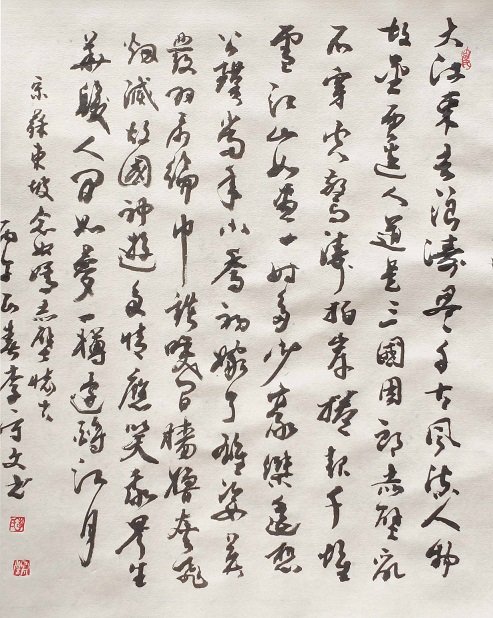 大江東去浪濤盡千古風流人物
故壘西邊人道是三國周郎赤壁亂
石穿空驚濤拍岸捲起千堆
雪江山如畫一時多少豪傑遙想
公瑾當年小喬初嫁了雄姿英
發羽扇綸巾談笑間檣艣灰飛
烟滅故國神遊多情應笑我早生
華髮人間如夢一樽還酹江月
宋蘇東坡念奴嬌赤壁懷古
春李守文書